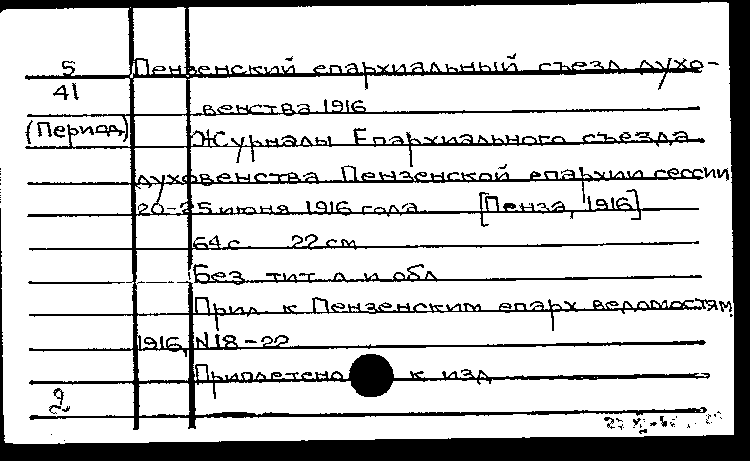 5 Пензенский епархиальный съезд духо-
41
венства 1916
(Период) Журналы Епархиального съезда
духовенства Пензенской епархии сессии
20-25 июня 1916 года [Пенза, 1916]
64 с 22 см
Без тит л и обл
Прил к Пензенским епарх ведомостям
1916, N18-22
Приплетено к изд
2